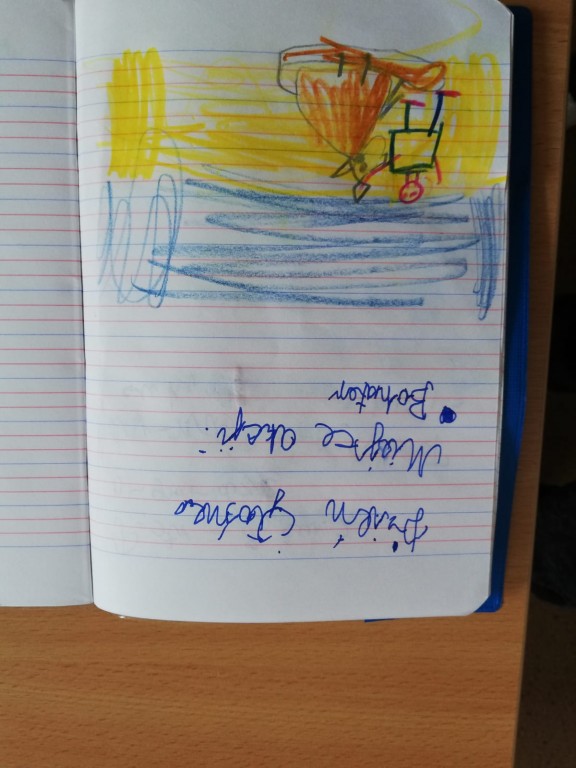 Dzień Głośne
Miejsce akcji:
• Bohater